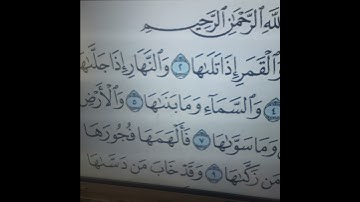 للَّهِ الرَّحْمَٰنِ الرَّحِيمِ
وَالْقَمَرِ إِذَا تَلَىٰهَا ٢ وَالنَّهَارِ إِذَا جَلَّىٰهَا
٤ وَالسَّمَاءِ وَمَا بَنَىٰهَا ٥ وَالْأَرْضِ
وَمَا سَوَّىٰهَا ٧ فَأَلْهَمَهَا فُجُورَهَا
مَن زَكَّىٰهَا ٩ وَقَدْ خَابَ مَن دَسَّىٰهَا